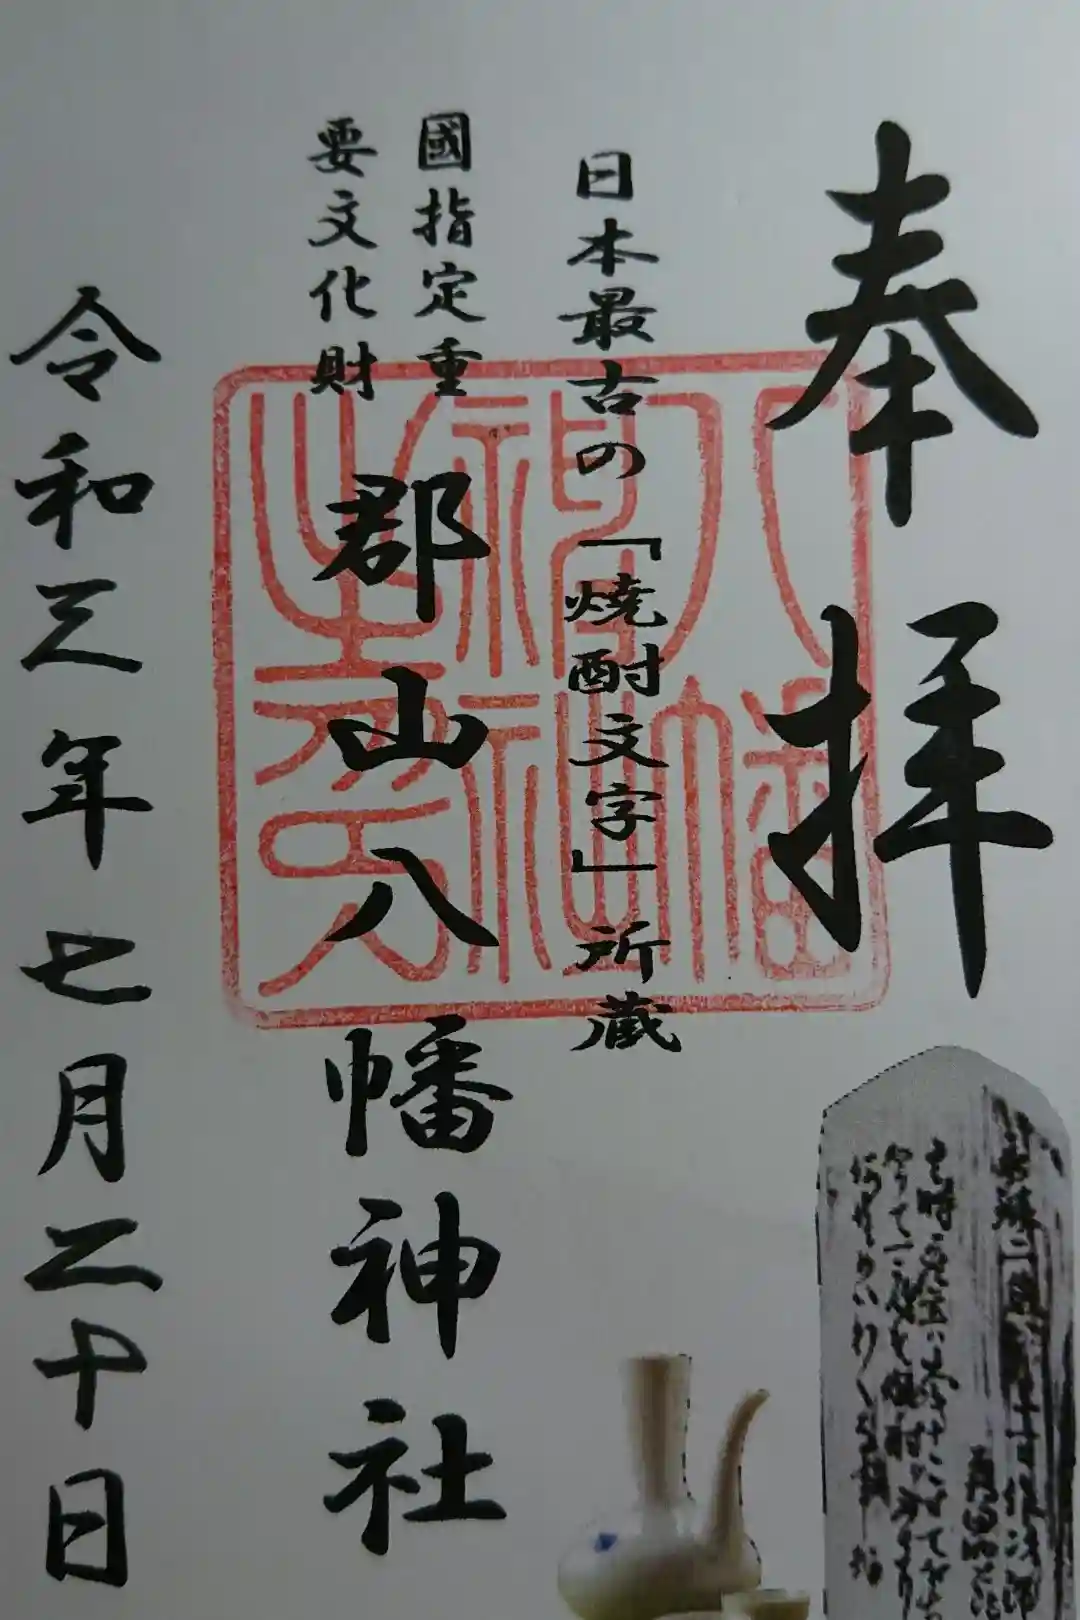 奉拝
日本最古の「焼酎文字」所蔵
國指定重
要文化財
郡山八幡神社
令和三年七月二十日
八幡
神社
之印